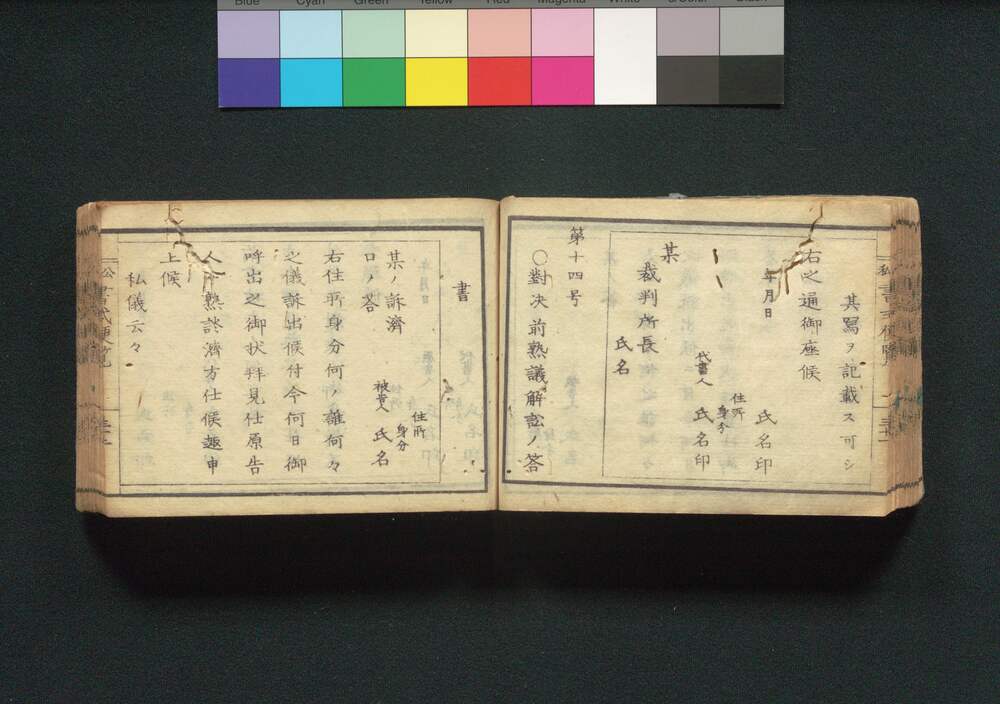 Blue Cyan Green Yellow Red Magenta White 3/Color Black
其寫ヲ記載ス可シ
右之通御座候
年月日
住所
身分
氏名印
代書人 氏名印
某
裁判所長
氏名
第十四号
○對决前熟議解訟ノ答
書
某ノ訴濟
口ノ答
住所
身分
被告人 氏名
右住所身分何ノ誰何々
之儀訴出候付今何日御
呼出之御状拜見仕原告
人ヘ熟談濟方仕候趣申
上候
私儀云々